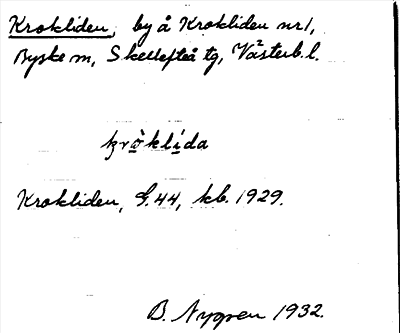 Krokliden, by å Krokliden nr 1,
Byske sn, Skellefteå tg, Västerb. l.
krò̱klí̱da
Krokliden, G.44, kb. 1929.
B. Nygren 1932.